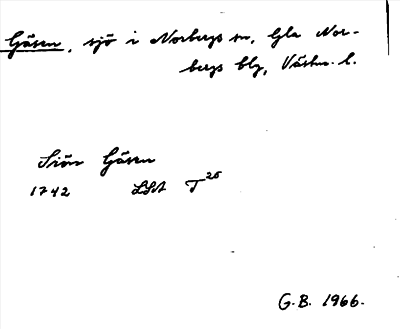 Gåsen, sjö i Norbergs sn, Gla Nor-
bergs blg, Västm. l.
Siön Gåsen
1742 LSA T 26
G.B. 1966.